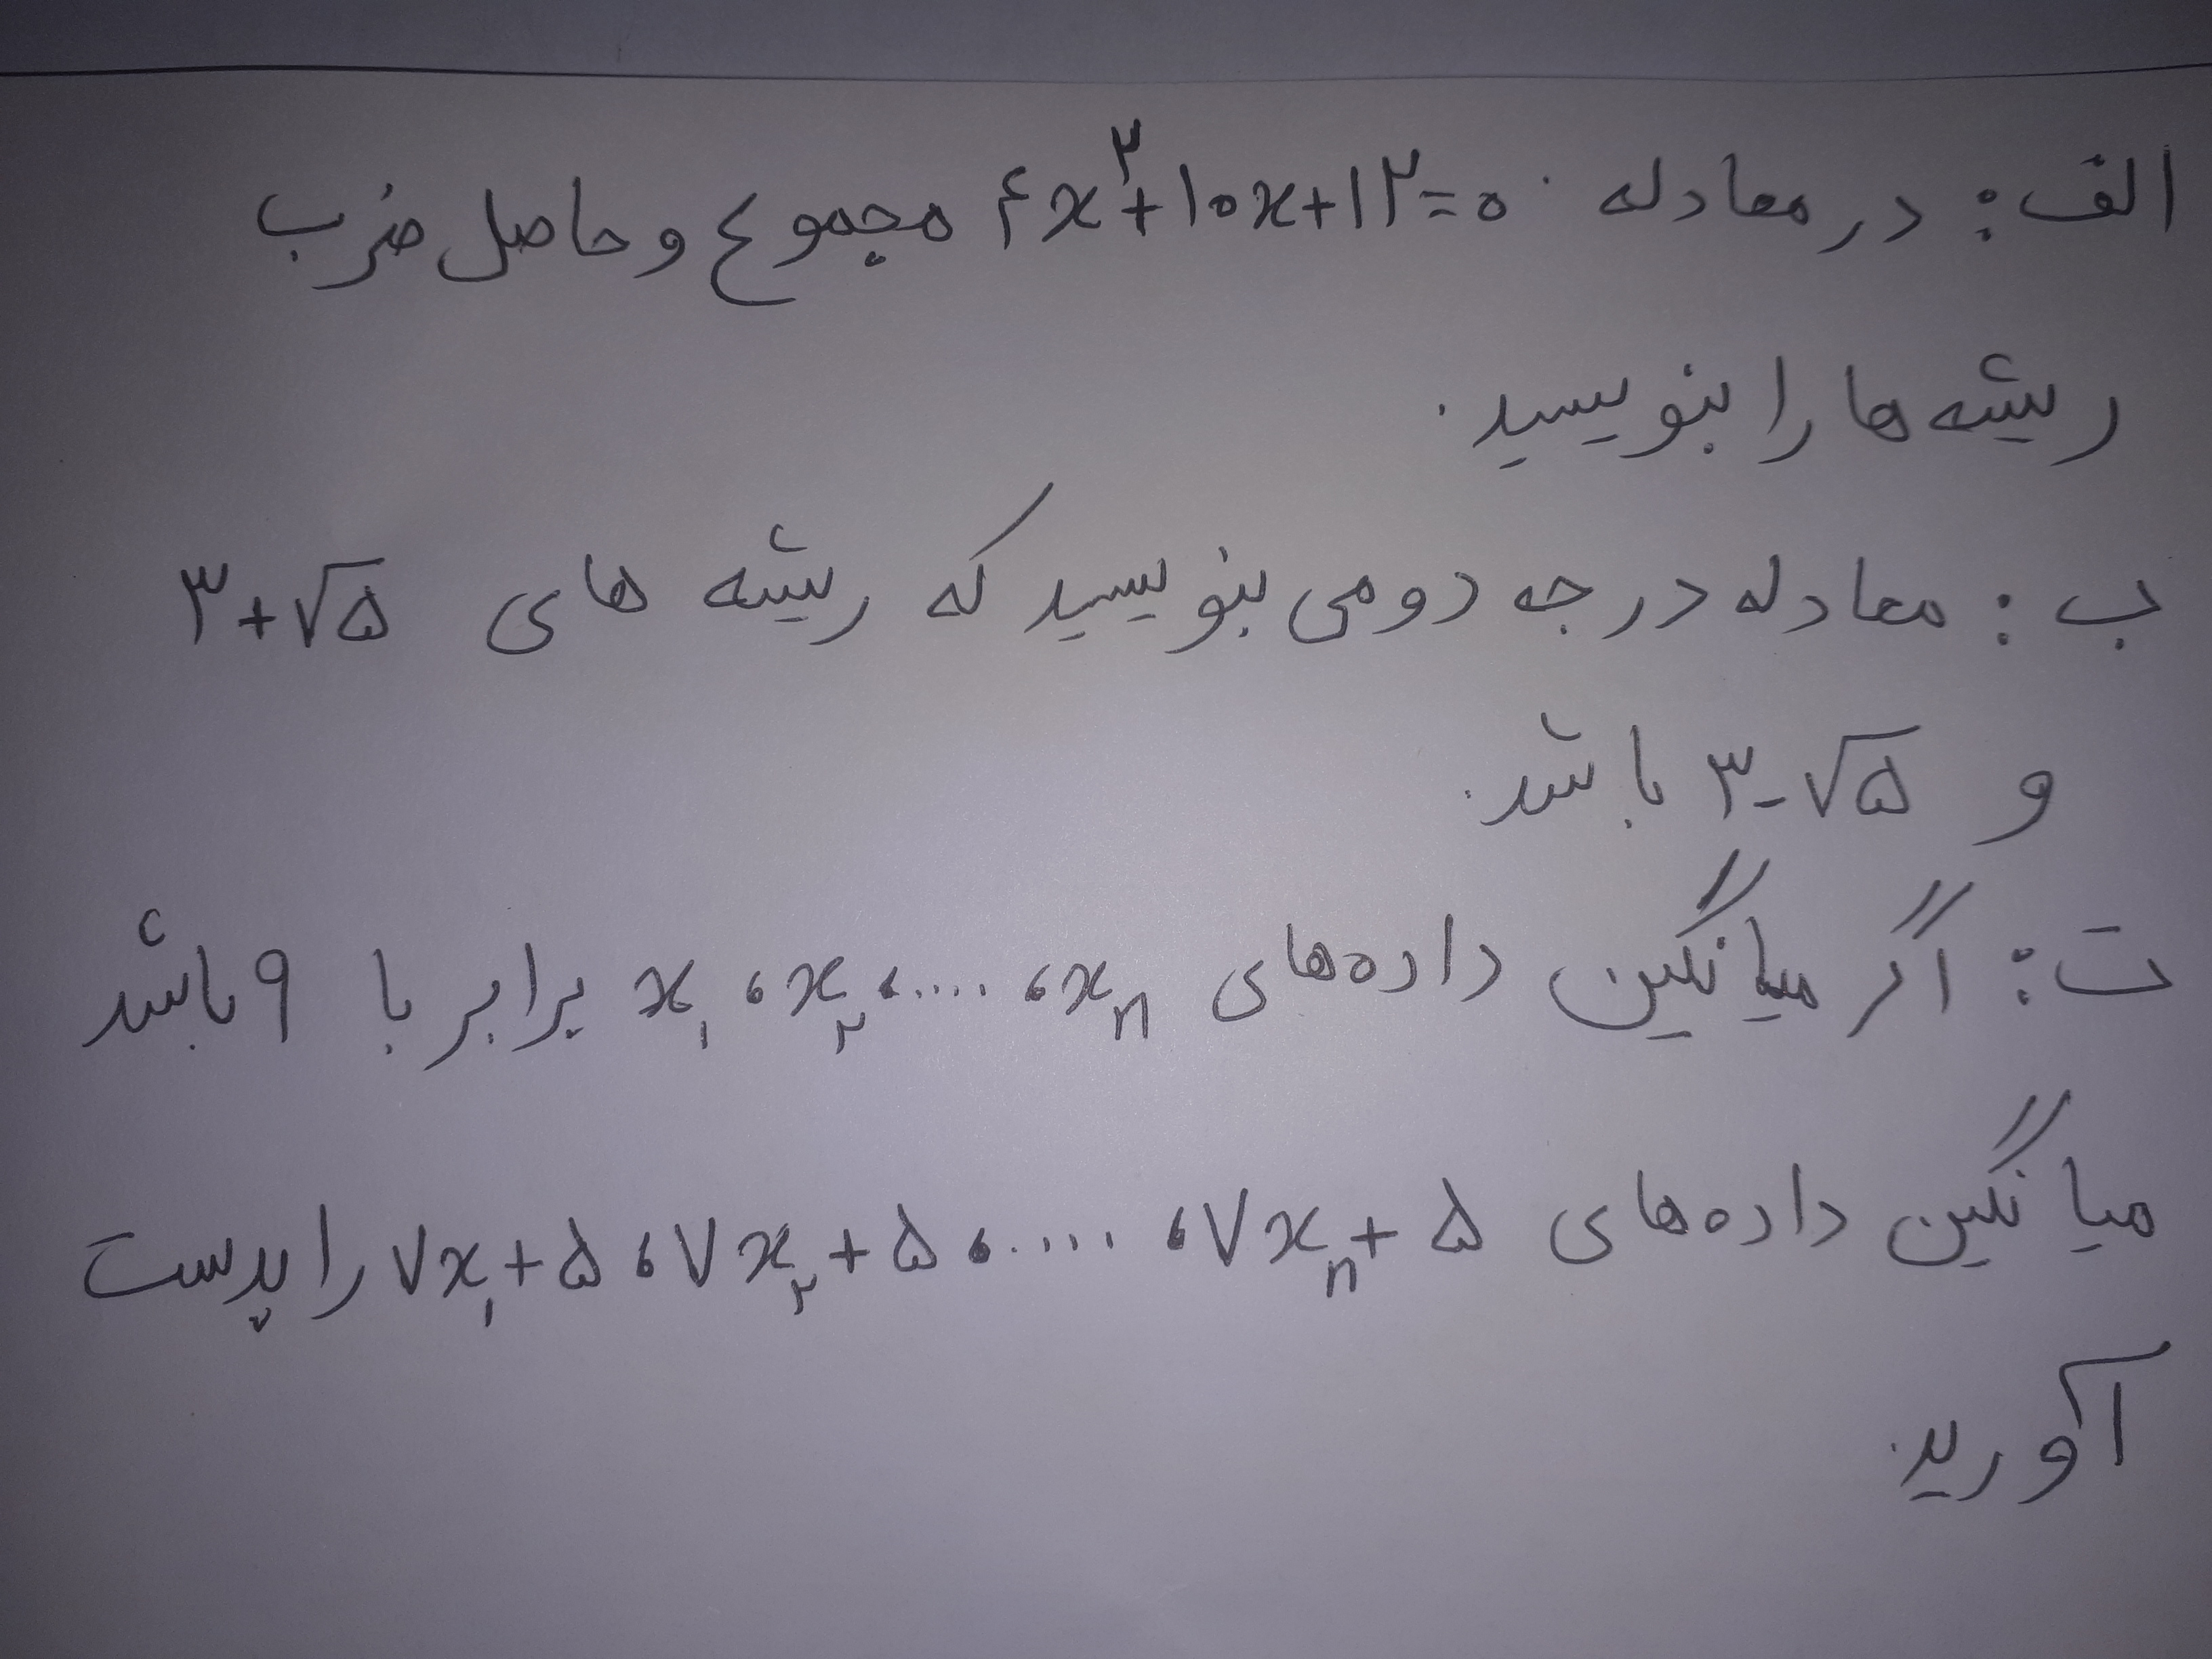 الف: در معادله ۴x^۲+۱۰x+۱۲=۰ مجموع و حاصل ضرب
ریشه ها را بنویسید.
ب: معادله درجه دومی بنویسید که ریشه های ۳+√۵
و ۳-√۵ باشد.
ت: اگر میانگین داده‌های x₁، x₂، ....، xₙ برابر با ۹ باشد
میانگین داده‌های ۷x₁+۵، ۷x₂+۵، ....، ۷xₙ+۵ را بدست
آورید.